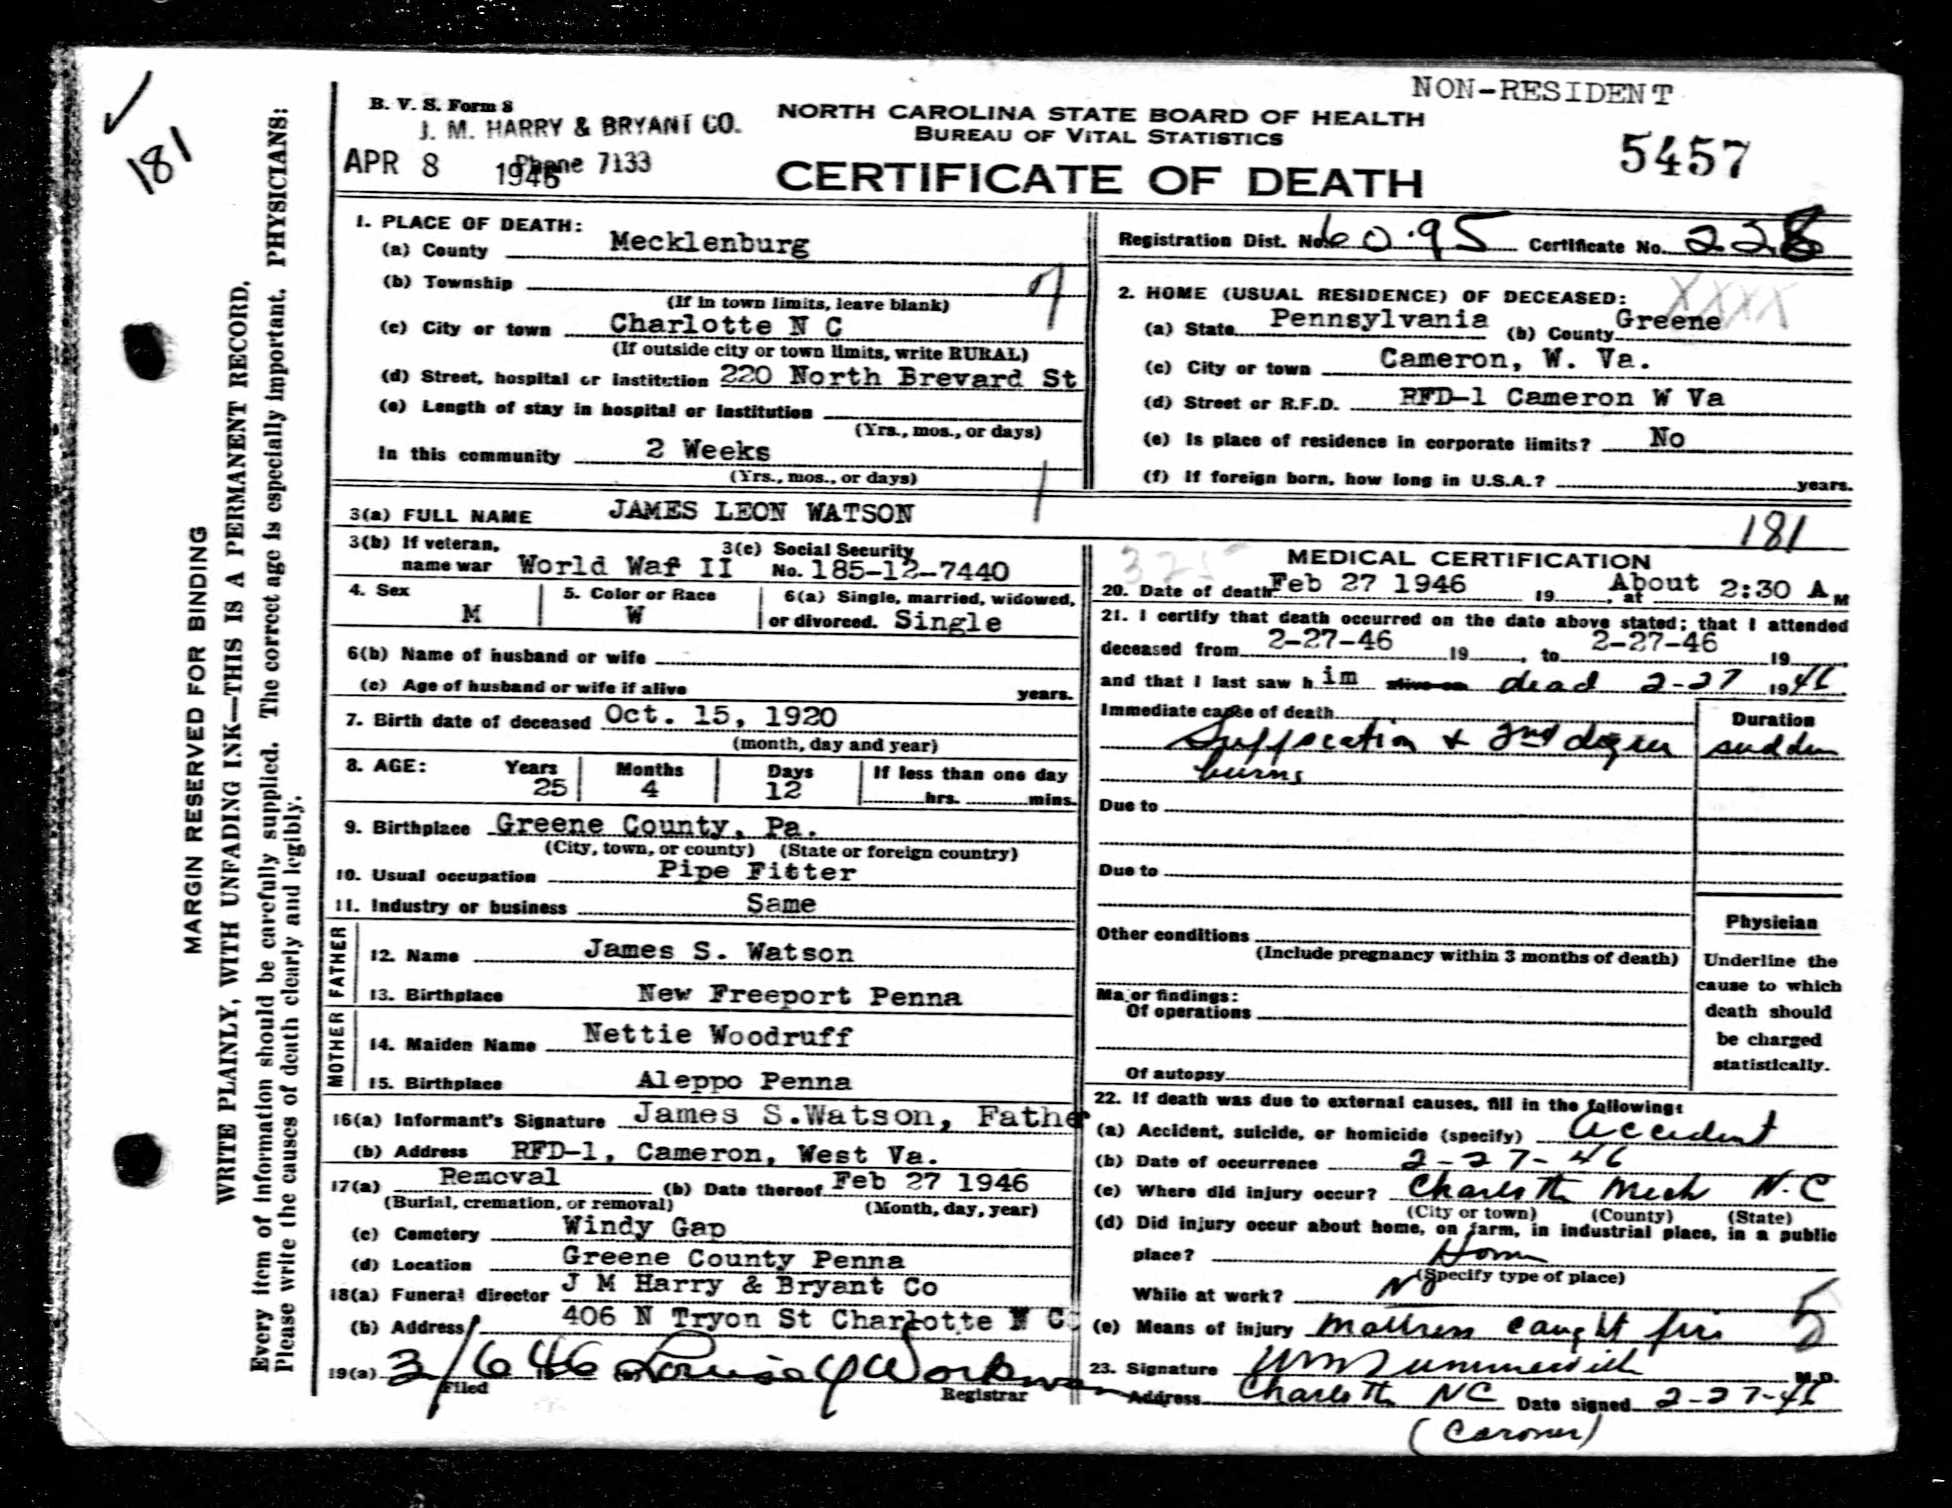 NON-RESIDENT
✓
181
B. V. S. Form 8
J. M. HARRY & BRYANT CO.
Phone 7133
APR 8 1946
NORTH CAROLINA STATE BOARD OF HEALTH
BUREAU OF VITAL STATISTICS
CERTIFICATE OF DEATH
5457
MARGIN RESERVED FOR BINDING
WRITE PLAINLY, WITH UNFADING INK—THIS IS A PERMANENT RECORD.
Every item of information should be carefully supplied. The correct age is especially important. PHYSICIANS:
Please write the causes of death clearly and legibly.
1. PLACE OF DEATH:
(a) County Mecklenburg
(b) Township
(If in town limits, leave blank)
(c) City or town Charlotte N C
(If outside city or town limits, write RURAL)
(d) Street, hospital or institution 220 North Brevard St
(e) Length of stay in hospital or institution
(Yrs., mos., or days)
In this community 2 Weeks
(Yrs., mos., or days)
Registration Dist. No. 60-95 Certificate No. 228
2. HOME (USUAL RESIDENCE) OF DECEASED: XXXX
(a) State Pennsylvania (b) County Greene
(c) City or town Cameron, W. Va.
(d) Street or R.F.D. RFD-1 Cameron W Va
(e) Is place of residence in corporate limits? No
(f) If foreign born, how long in U.S.A.? years.
3(a) FULL NAME JAMES LEON WATSON
181
3(b) If veteran, name war World War II 3(c) Social Security No. 185-12-7440
4. Sex M
5. Color or Race W
6(a) Single, married, widowed, or divorced. Single
6(b) Name of husband or wife
(c) Age of husband or wife if alive years.
7. Birth date of deceased Oct. 15, 1920
(month, day and year)
8. AGE: Years 25 Months 4 Days 12 If less than one day hrs. mins.
9. Birthplace Greene County, Pa.
(City, town, or county) (State or foreign country)
10. Usual occupation Pipe Fitter
11. Industry or business Same
FATHER
12. Name James S. Watson
13. Birthplace New Freeport Penna
MOTHER
14. Maiden Name Nettie Woodruff
15. Birthplace Aleppo Penna
16(a) Informant's Signature James S.Watson, Father
(b) Address RFD-1, Cameron, West Va.
17(a) Removal (b) Date thereof Feb 27 1946
(Burial, cremation, or removal) (Month, day, year)
(c) Cemetery Windy Gap
(d) Location Greene County Penna
18(a) Funeral director J M Harry & Bryant Co
(b) Address 406 N Tryon St Charlotte N C
19(a) 3/6 46 Louise Y Workman
Filed Registrar
325
MEDICAL CERTIFICATION
20. Date of death Feb 27 1946 19 , at About 2:30 A M
21. I certify that death occurred on the date above stated; that I attended
deceased from 2-27-46 19 , to 2-27-46 19
and that I last saw h im alive on dead 2-27 1946
Immediate cause of death Duration
Suffocation & 2nd degree sudden
burns
Due to
Due to
Other conditions
(Include pregnancy within 3 months of death)
Major findings:
Of operations
Of autopsy
Physician
Underline the
cause to which
death should
be charged
statistically.
22. If death was due to external causes, fill in the following:
(a) Accident, suicide, or homicide (specify) Accident
(b) Date of occurrence 2-27-46
(c) Where did injury occur? Charlotte Meck N.C
(City or town) (County) (State)
(d) Did injury occur about home, on farm, in industrial place, in a public
place? Home
(Specify type of place)
While at work? No
(e) Means of injury Mattress caught fire
5
23. Signature M.D.
Address Charlotte NC Date signed 2-27-46
(Coroner)